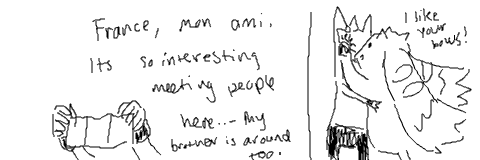 France, mon ami.
Its so interesting
meeting people
here... My
brother is around
too.
I like
your
bows!